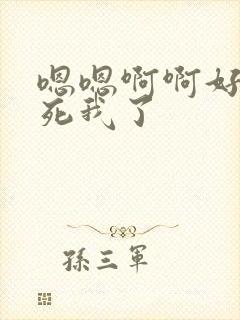 嗯嗯啊啊好
死我了
孫三軍